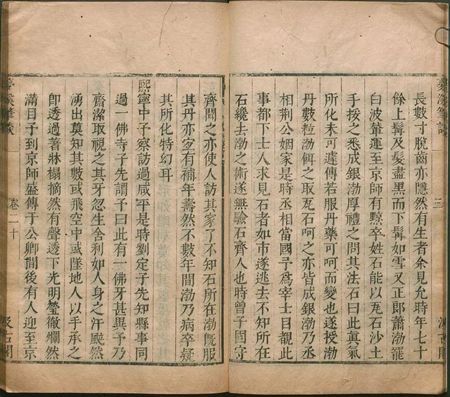 長數寸脫齒亦隱然有生者余見允時年七十
餘上髯及髮盡黑而下髯如雪又正郎蕭渤罷
白波輦運至京師有黥卒姓石能以瓦石沙土
手挼之悉成銀渤厚禮之問其法石曰此眞氣
所化未可遽傳若服丹藥可呵而變也遂授渤
丹數粒渤餌之取瓦石呵之亦皆成銀渤乃丞
相荆公姻家是時丞相當國予爲宰士目覩此
事都下士人求見石者如市遂逃去不知所在
石纔去渤之術遂無驗石齊人也時曾子固守
齊聞之亦使人訪其家了不知石所在渤旣服
其丹亦宜有補年壽然不數年間渤乃病卒疑
其所化特幻耳
熙寧中予察訪過咸平是時劉定子先知縣事同
過一佛寺子先謂予曰此有一佛牙甚異予乃
齋潔取視之其牙忽生舍利如人身之汗颯然
湧出莫知其數或飛空中或墜地人以手承之
卽透過著牀榻摘然有聲透下光明瑩徹爛然
滿目予到京師盛傳于公卿間後有人迎至京
卷二十